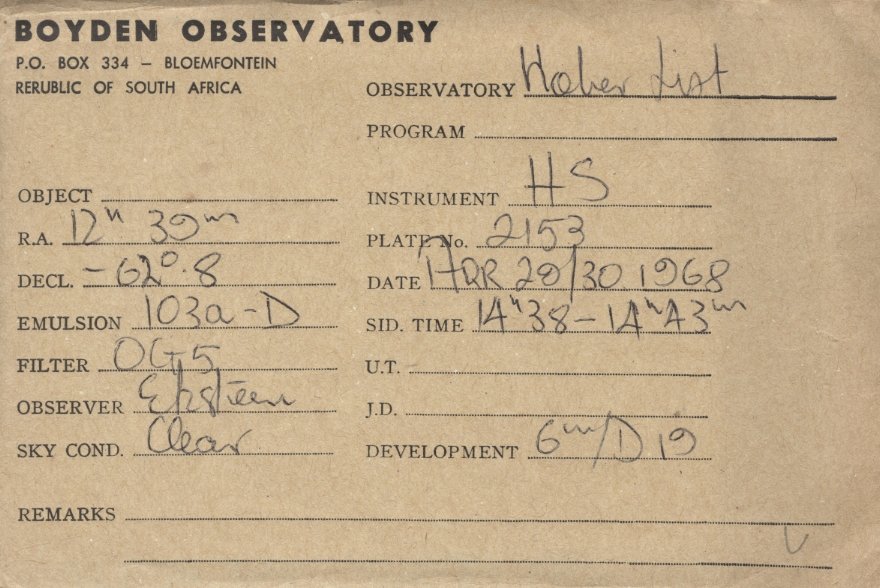 BOYDEN OBSERVATORY
P.O. BOX 334 – BLOEMFONTEIN
RERUBLIC OF SOUTH AFRICA
OBSERVATORY Hoher List
PROGRAM
OBJECT
R.A. 12h 39m
DECL. -62°.8
EMULSION 103a-D
FILTER OG5
OBSERVER Eksteen
SKY COND. Clear
INSTRUMENT HS
PLATE No. 2153
DATE APR 29/30 1968
SID. TIME 14h38 - 14h43m
U.T.
J.D.
DEVELOPMENT 6m/D19
REMARKS